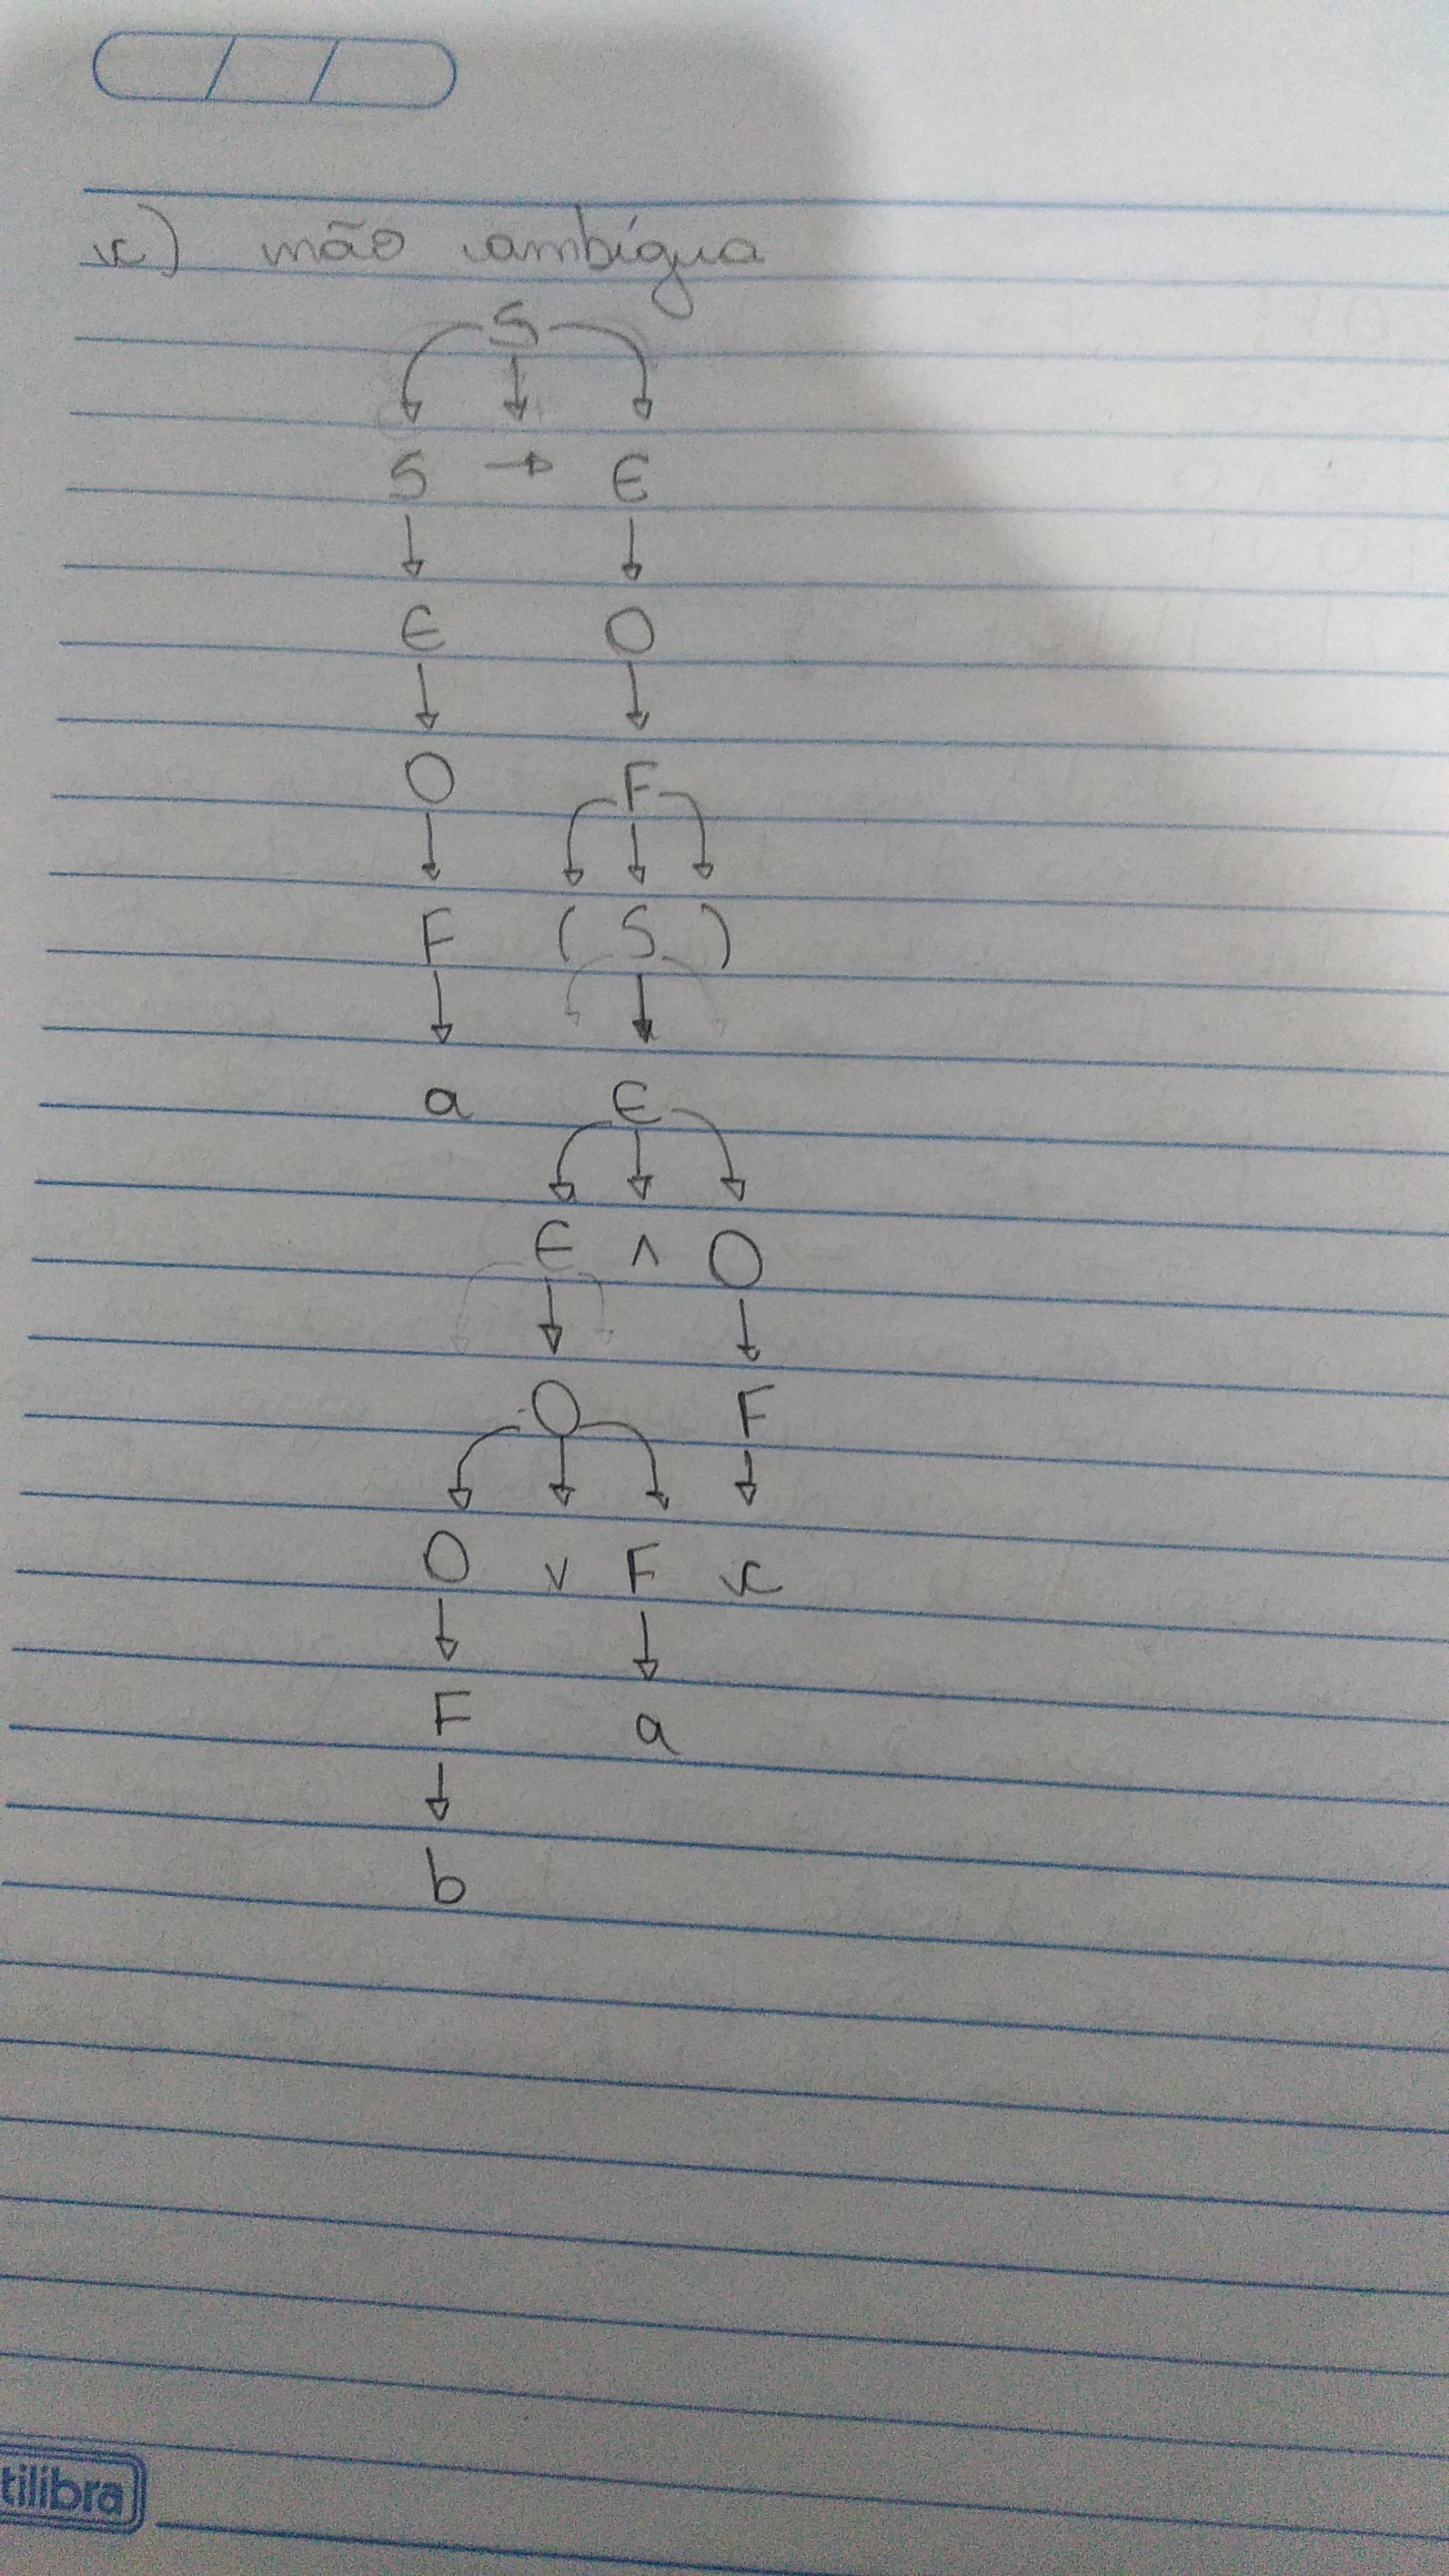 c) não ambígua
S
S → E
E O
O F
F ( S )
a E
E ∧ O
O F
O ∨ F c
F a
b
tilibra